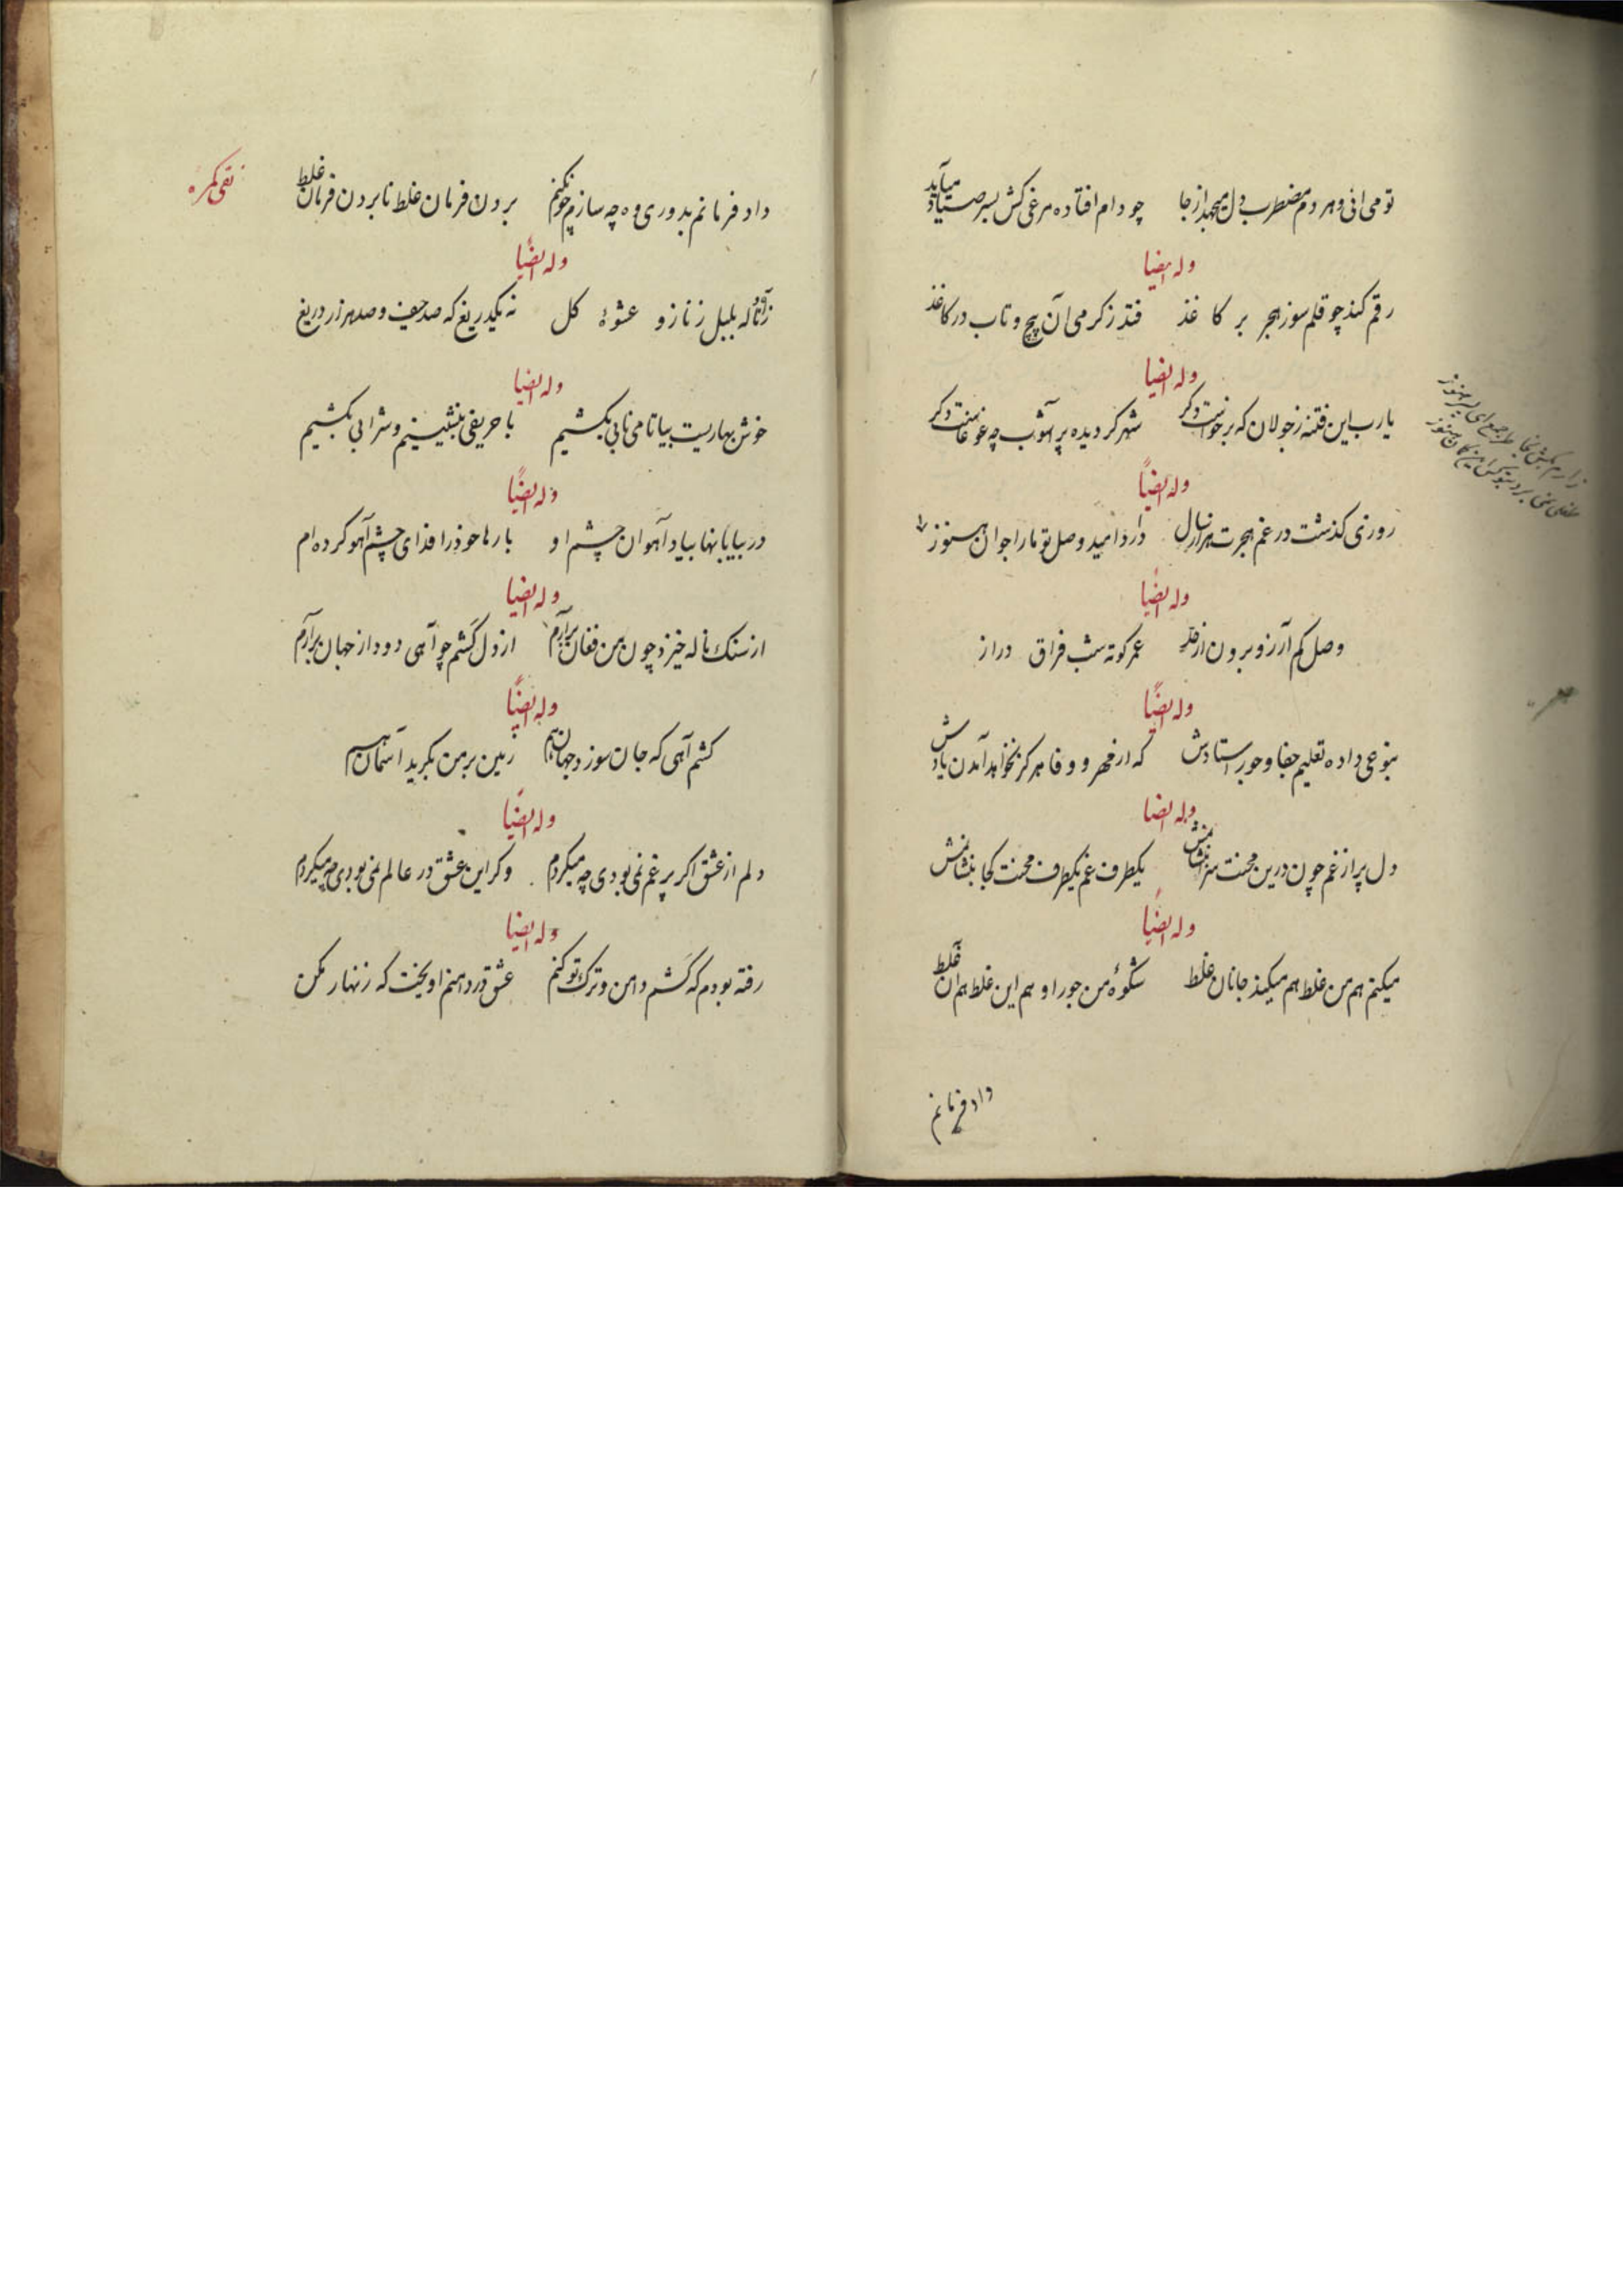 تو می آئی و هر دم مضطرب دل میجهد از جا چو دام افتاده مرغی کش بسر صیاد میآید
وله ایضا
رقم کند چو قلم سوز هجر بر کاغذ فتد ز گرمی آن پیچ و تاب در کاغذ
وله ایضا
یارب این فتنه ز جولان که برخواست دکر شهر کردیده پر آشوب چه غوغاست دکر
وله ایضاً
روزی کذشت در غم هجرت هزار سال دارد امید وصل تو ما را جوان هنوز
وله ایضاً
وصل کم آرزو برون از حد عمر کوته شب فراق دراز
وله ایضاً
بنوعی داده تعلیم جفا و جور استادش که از مهر و وفا هرکز نخواهد آمدن یادش
وله ایضا
دل پر از غم چون درین محنت سرا بنشانمش یکطرف غم یکطرف محنت کجا بنشانمش
وله ایضاً
میکنم هم من غلط هم میکند جانان غلط شکوهٔ من جور او هم این غلط هم آن غلط
داد فرمانم
داد فرمانم بدوری وه چه سازم چون کنم بردن فرمان غلط نابردن فرمان غلط
نقی کمره
وله ایضاً
ناله بلبل ز ناز و عشوهٔ کل نه یکدریغ که صد حیف و صد هزار دریغ
وله ایضا
خوش بهاریست بیا تا می نابی بکشیم با حریفی بنشینیم و شرابی بکشیم
وله ایضاً
در بیابانها بیاد آهوان چشم او بارها خود را فدای چشم آهو کرده ام
وله ایضا
از سنک ناله خیزد چون من فغان برآرم از دل کشم چو آهی دود از جهان برآرم
وله ایضاً
کشم آهی که جان سوزد جهان هم زمین بر من بکرید آسمان هم
وله ایضاً
دلم از عشق اکر پر غم نمی بودی چه میکردم وکر این عشق در عالم نمی بودی چه میکردم
وله ایضا
رفته بودم که کشم دامن و ترک تو کنم عشق در دامنم آویخت که زنهار مکن